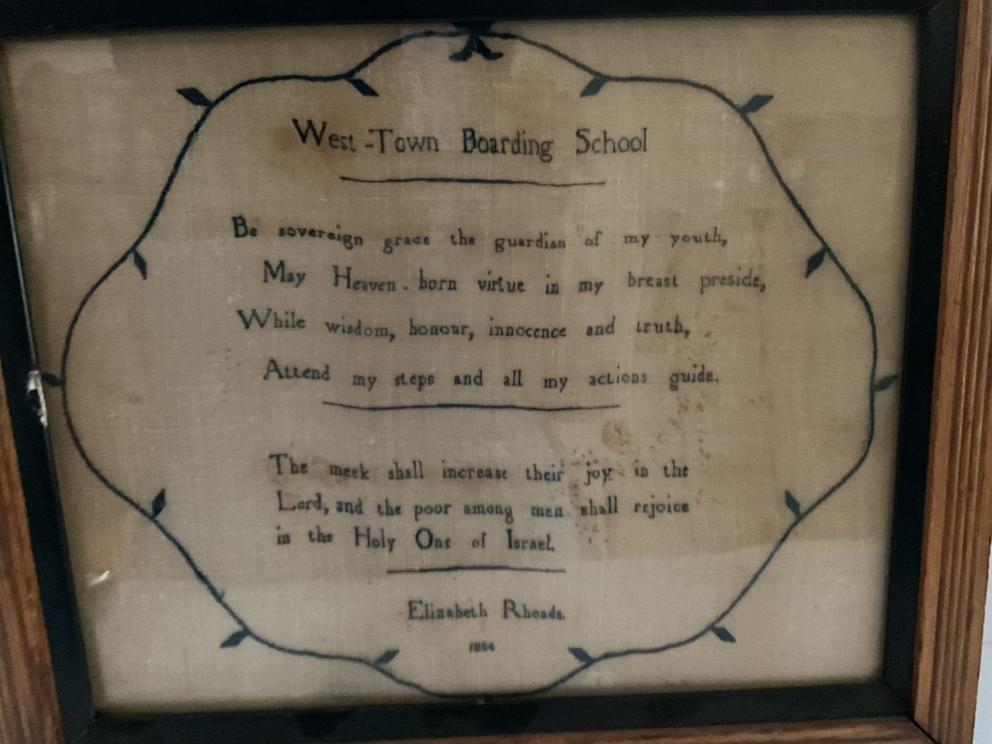 West-Town Boarding School
Be sovereign grace the guardian of my youth,
May Heaven-born virtue in my breast preside,
While wisdom, honour, innocence and truth,
Attend my steps and all my actions guide.
The meek shall increase their joy in the
Lord, and the poor among men shall rejoice
in the Holy One of Israel.
Elizabeth Rhoads.
1804